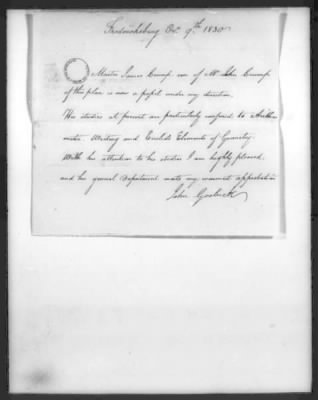 Fredericksburg Oct. 9th 1830
Master James Crump son of Mr John Crump
of this place is now a pupil under my direction.
His studies at present are particularly confined to Arith=
metic Writing and Euclids Elements of Geometry
With his attention to his studies I am highly pleased
and his general Deportment meets my warmest approbation
John Goolrick